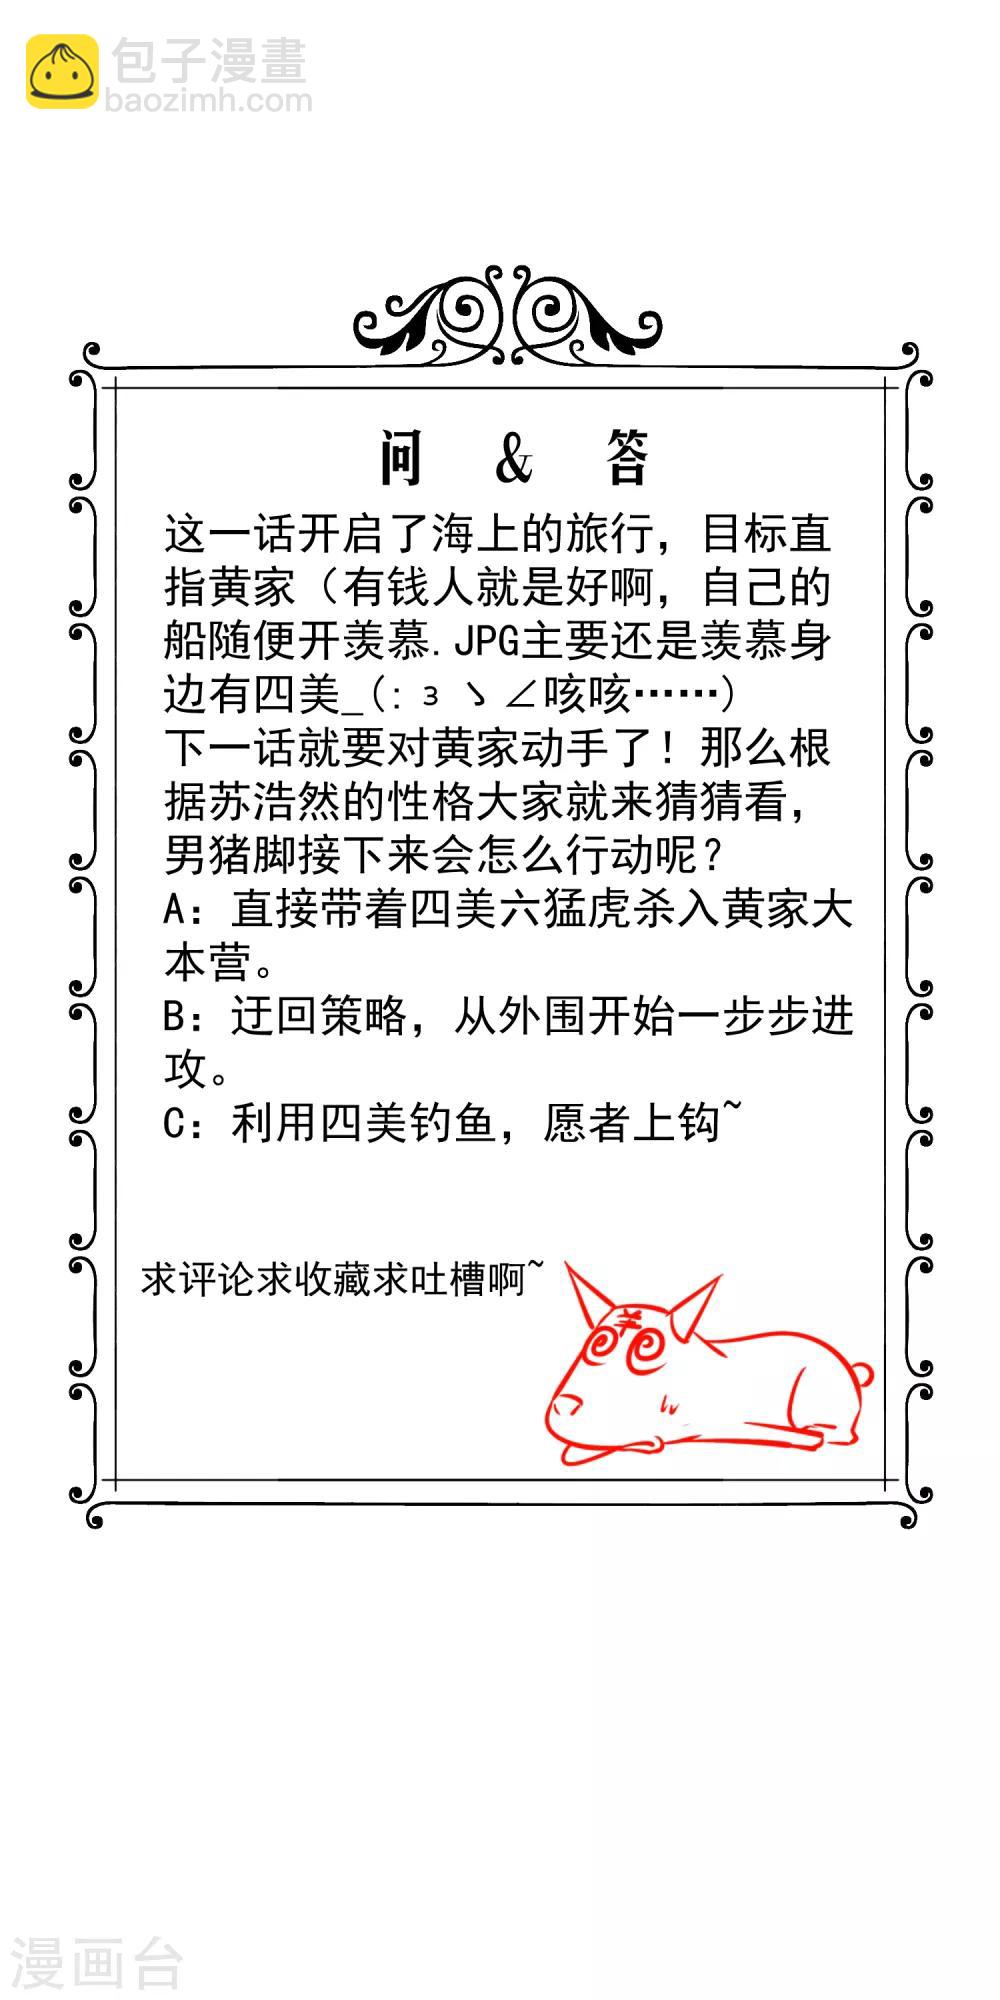 包子漫畫
baozimh.com
问 & 答
这一话开启了海上的旅行，目标直
指黄家（有钱人就是好啊，自己的
船随便开羡慕.JPG主要还是羡慕身
边有四美_(:з ゝ∠咳咳……)
下一话就要对黄家动手了！那么根
据苏浩然的性格大家就来猜猜看，
男猪脚接下来会怎么行动呢？
A：直接带着四美六猛虎杀入黄家大
本营。
B：迂回策略，从外围开始一步步进
攻。
C：利用四美钓鱼，愿者上钩~
求评论求收藏求吐槽啊~
漫画台